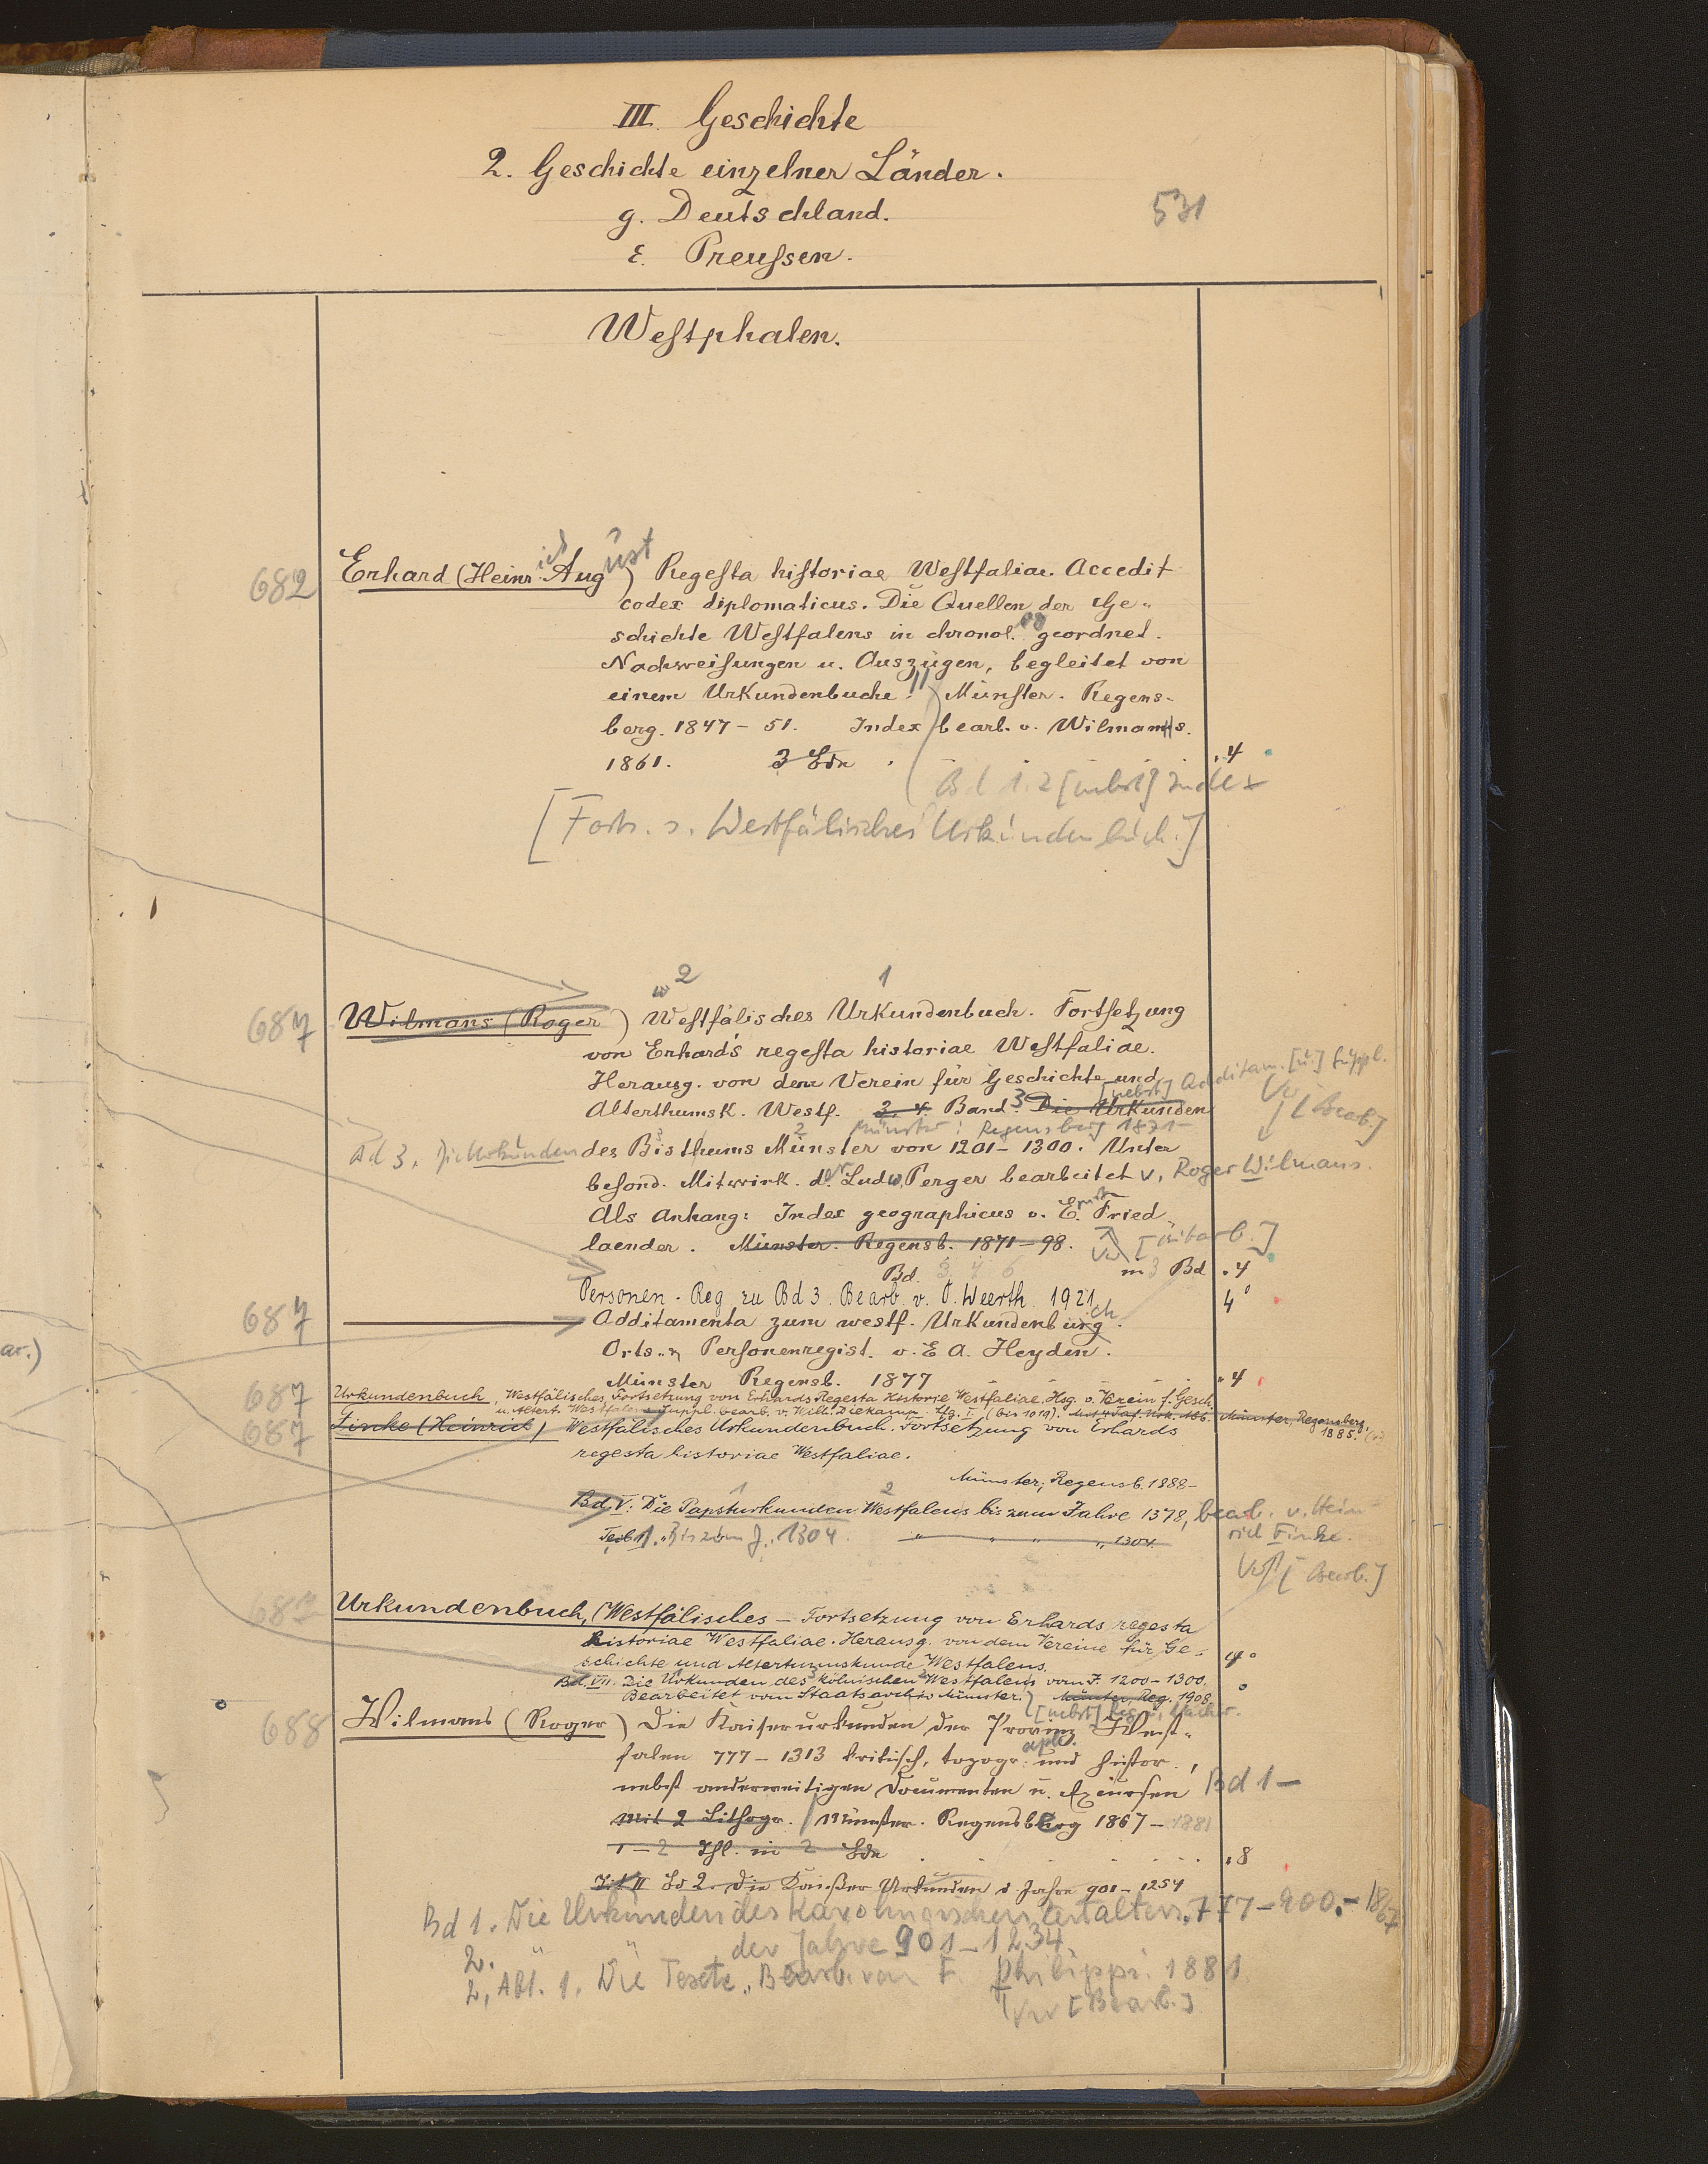 III. Geschichte
2. Geschichte einzelner Länder.
g. Deutschland.
531
ε. Preußen.
Westphalen.
682
Erhard (Heinrich August) Regesta historiae Westfaliae. Accedit
codex diplomaticus. Die Quellen der Ge-
schichte Westfalens in chronol. geordnet.
Nachweisungen u. Auszügen, begleitet von
einem Urkundenbuche. Münster. Regens-
berg. 1847-51. Index bearb. v. Wilmans.
1861. 3 Bde . 4
Bd 1. 2 [nebst] Index
[Forts. s. Westfälisches Urkundenbuch.]
2 1
687
Wilmans (Roger) Westfälisches Urkundenbuch. Fortsetzung
von Erhard's regesta historiae Westfaliae.
Herausg. von dem Verein für Geschichte und
[nebst] Additam. [u.] Suppl.
Alterthumsk. Westf. 3. 4. Band. 3 Die Urkunden
Münster: Regensberg 1871-
[Bearb.]
Bd 3. Die Urkunden des Bisthums Münster von 1201-1300. Unter
besond. Mitwirk. d. Ludw. Perger bearbeitet v. Roger Wilmans.
Als Anhang: Index geographicus v. Ernst Fried
laender. Münster. Regensb. 1871-98.
Bd. 3 4 6 in 3 Bd . 4
Personen-Reg zu Bd 3. Bearb. v. O. Weerth 1921 4°
687
Additamenta zum westf. Urkundenbuch.
Orts- u. Personenregist. v. E A. Heyden.
Münster Regensb. 1877 " 4
687
Urkundenbuch, Westfälisches, Fortsetzung von Erhards Regesta Historie Westfaliae. Hsg. v. Verein f. Gesch.
u. Altert. Westfalens Suppl. bearb. v. Wilh. Diekamp. Lfg. I (bis 1019). Münster, Regensberg, 1885.
687
Fincke (Heinrich) Westfälisches Urkundenbuch. Fortsetzung von Erhards
regesta historiae Westfaliae.
Münster, Regensb. 1888-
1 2
Bd. V. Die Papsturkunden Westfalens bis zum Jahre 1378, bearb. v. Hein
rich Finke.
Teil 1. Bis zum J. 1304. " " " " 1304
[Bearb.]
687
Urkundenbuch, (Westfälisches - Fortsetzung von Erhards regesta
historiae Westfaliae. Herausg. von dem Vereine für Ge-
schichte und Altertumskunde Westfalens. 4°
Bd. VII. Die Urkunden des kölnischen Westfalens vom J. 1200-1300.
Bearbeitet vom Staatsarchiv Münster. Münster, Reg. 1908
688
Wilmans (Roger) Die Kaiserurkunden der Provinz West-
falen 777-1313 kritisch, topogr. und histor.,
nebst anderweitigen Documenten u. Excursen Bd 1-
Mit 2 Lithogr. Münster. Regensberg 1867-1881
1-2 Thl. in 2 Bde . 8
Bd 2. Die Kaiser Urkunden d Jahre 901-1254
Bd 1. Die Urkunden des Karolingischen Zeitalters. 777-900.- 1867
2. " " der Jahre 901-1234
2, Abt. 1. Die Texte. Bearb. von F. Philippi. 1881
[Bearb.]